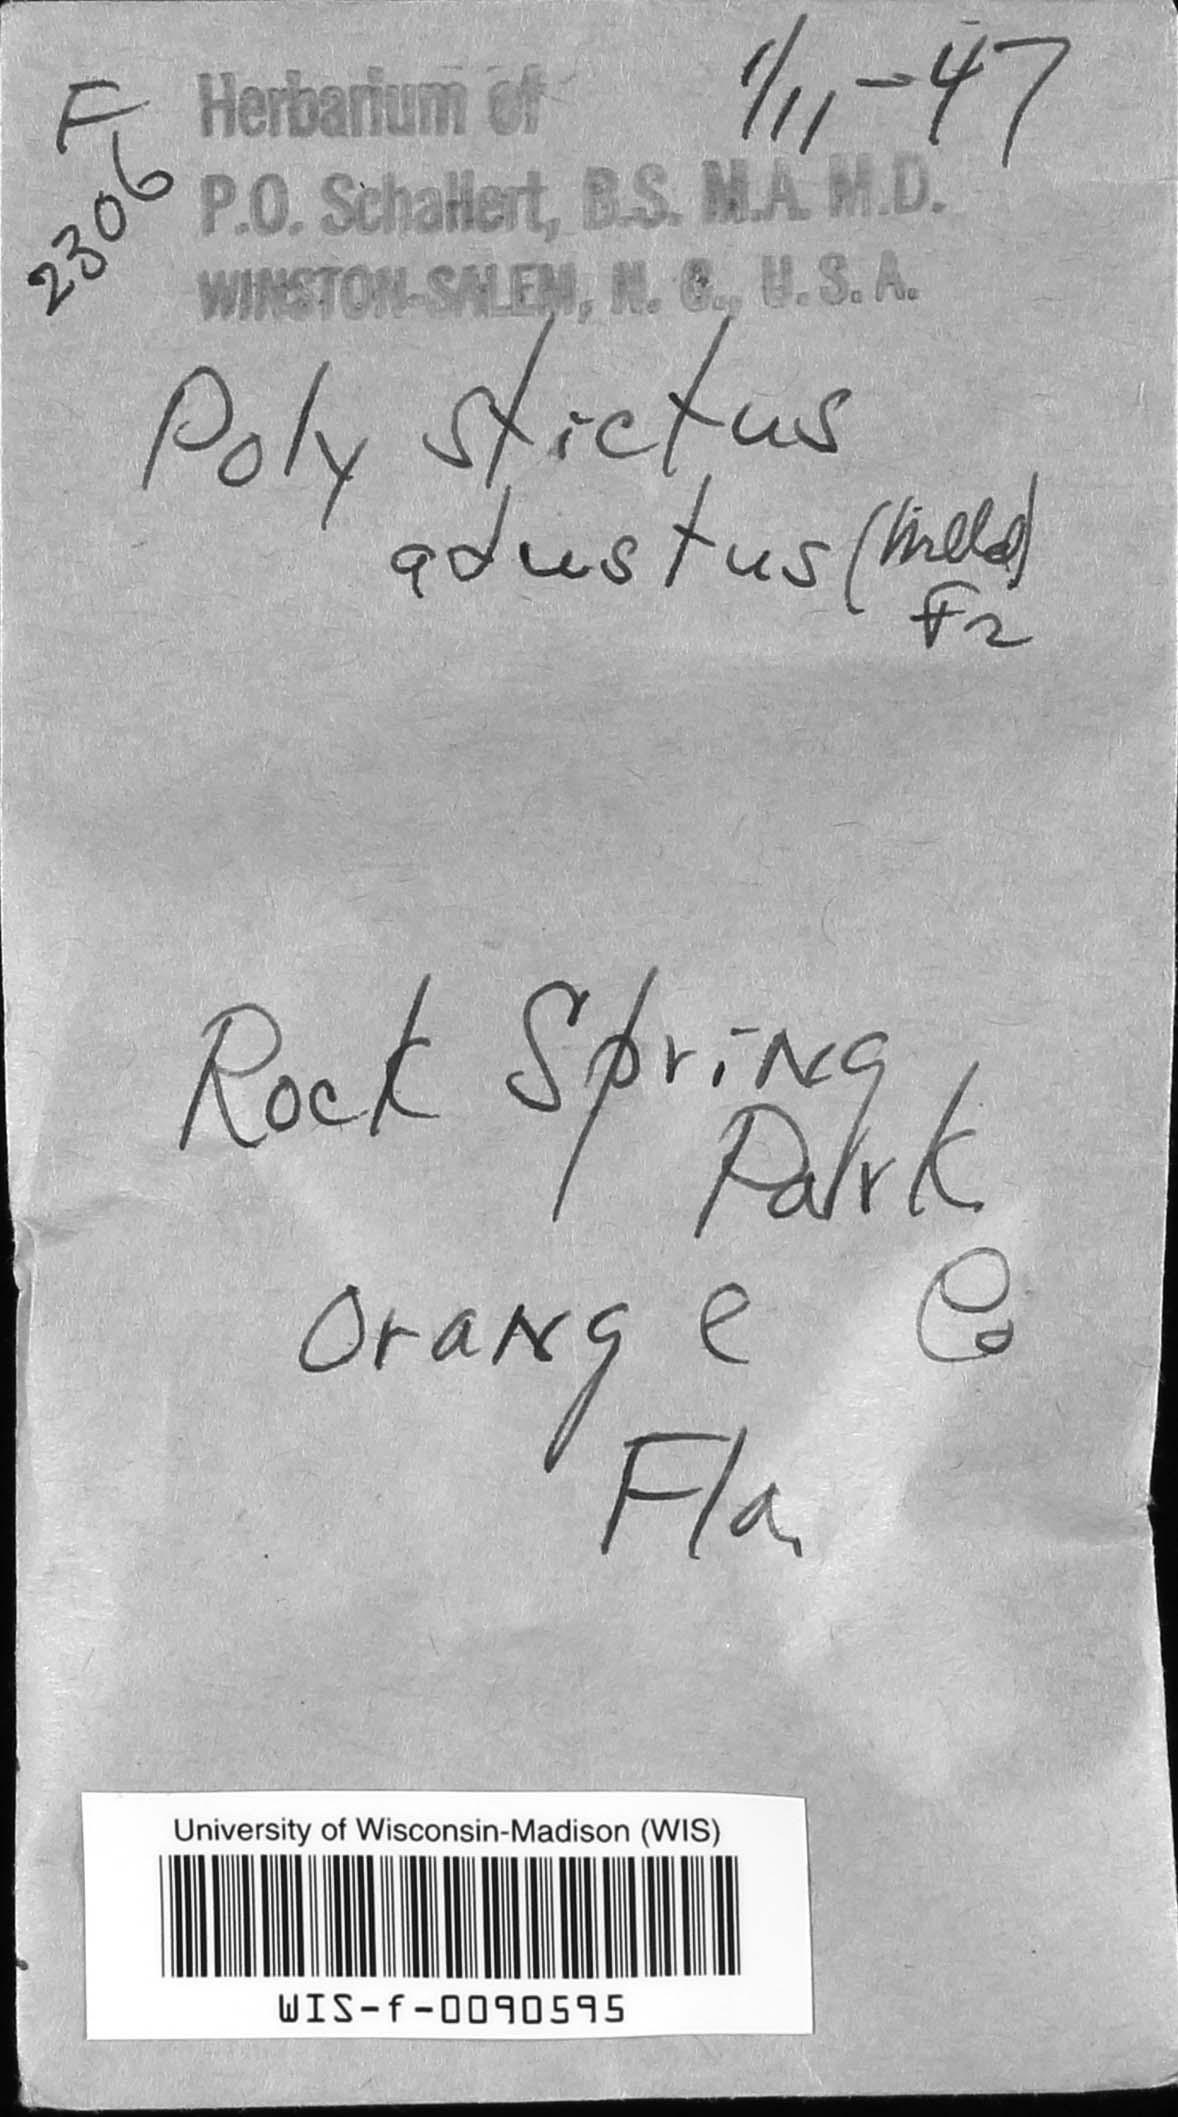 F 2306
Herbarium of
1/11-47
P.O. Schallert, B.S. M.A. M.D.
WINSTON-SALEM, N. C., U.S.A.
Poly stictus
adustus (Willd)
Fr
Rock Spring
Park
Orange Co
Fla.
University of Wisconsin-Madison (WIS)
WIS-f-0090595